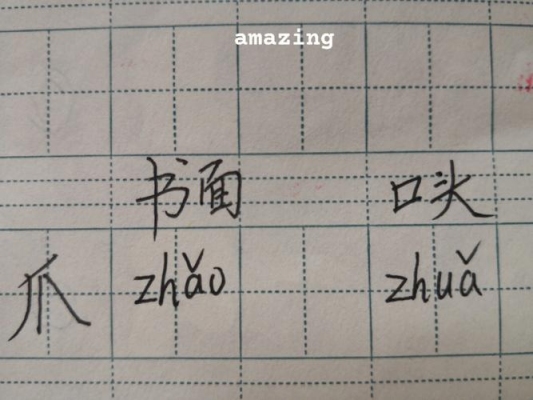 amazing
书面 口头
爪 zhǎo zhuǎ